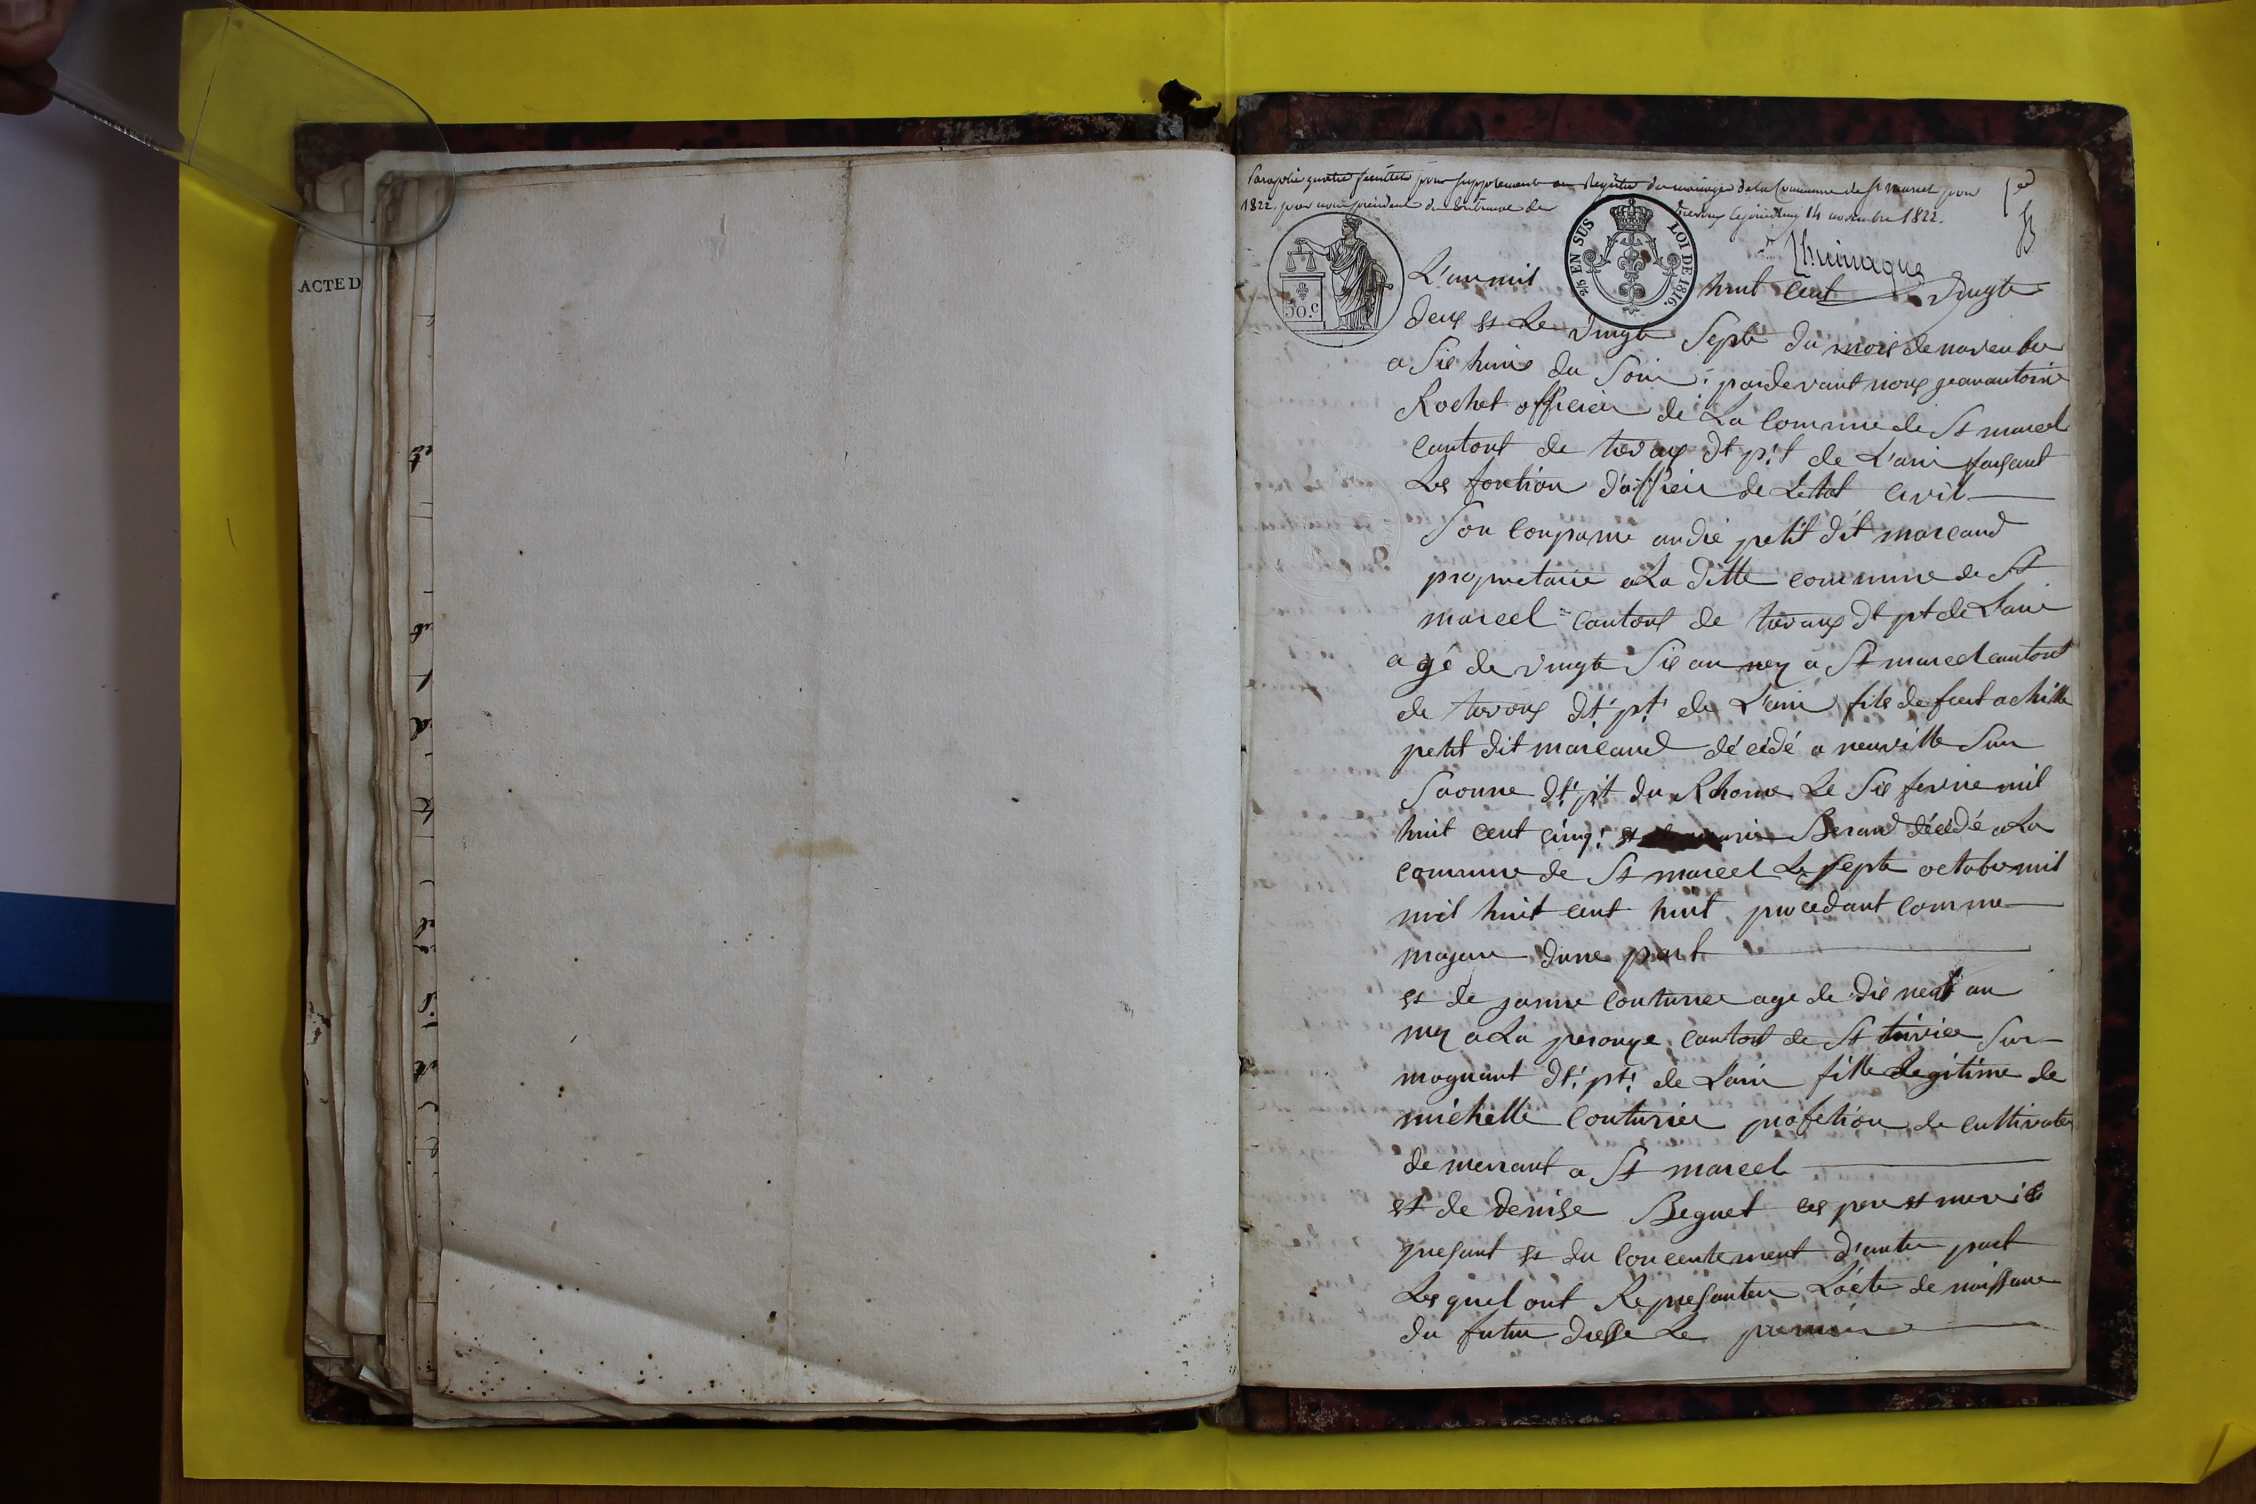 ACTE D
Paraphé quatre feuillets pour supplément au Registre du mariage de la Commune de St marcel pour
1822. par nous président du tribunal de Trevoux Ce jourdhuy 14 novembre 1822.
1er
2/5 EN SUS LOI DE 1816.
50.C
L'an mil huit cent vingte
deux et Le vingte Septe du mois de novembre
a Sie hures du Soir : pardevant nous jeanantoine
Rochet officier de La Commune de St marcel
Cantont de trevoux dt pt de L'ain faisant
Les fontion d'officier de L'etat civil
Son Conparue andré petit dit marcand
propriétaire a La ditte commune de St
marcel Cantont de trevoux dt pt de L'ain
agé de vingte Sie an ney a St marcel cantont
de trevoux dt pt de L'ain fils de feut achille
petit dit marcand décédé a neuville Sur
Saonne dt pt du Rhone Le Sie fevrie mil
huit cent cinq et marie Beraud décédé a La
commune de St marcel Le Septe octobre mil
mil huit cent huit procedant comme
majeur dune part
et de janne Couturier age de die neuf an
ney a La perouge Cantont de St trivier Sur
mognant dt pt de Lain fille Legitime de
michelle Couturier profetion de cultivateur
demeurant a St marcel
et de denise Beguet ces pere et mere ici
presant et du Concentement d'autre part
Les quel ont Represanter L'acte de naissance
du futur dresse Le premier